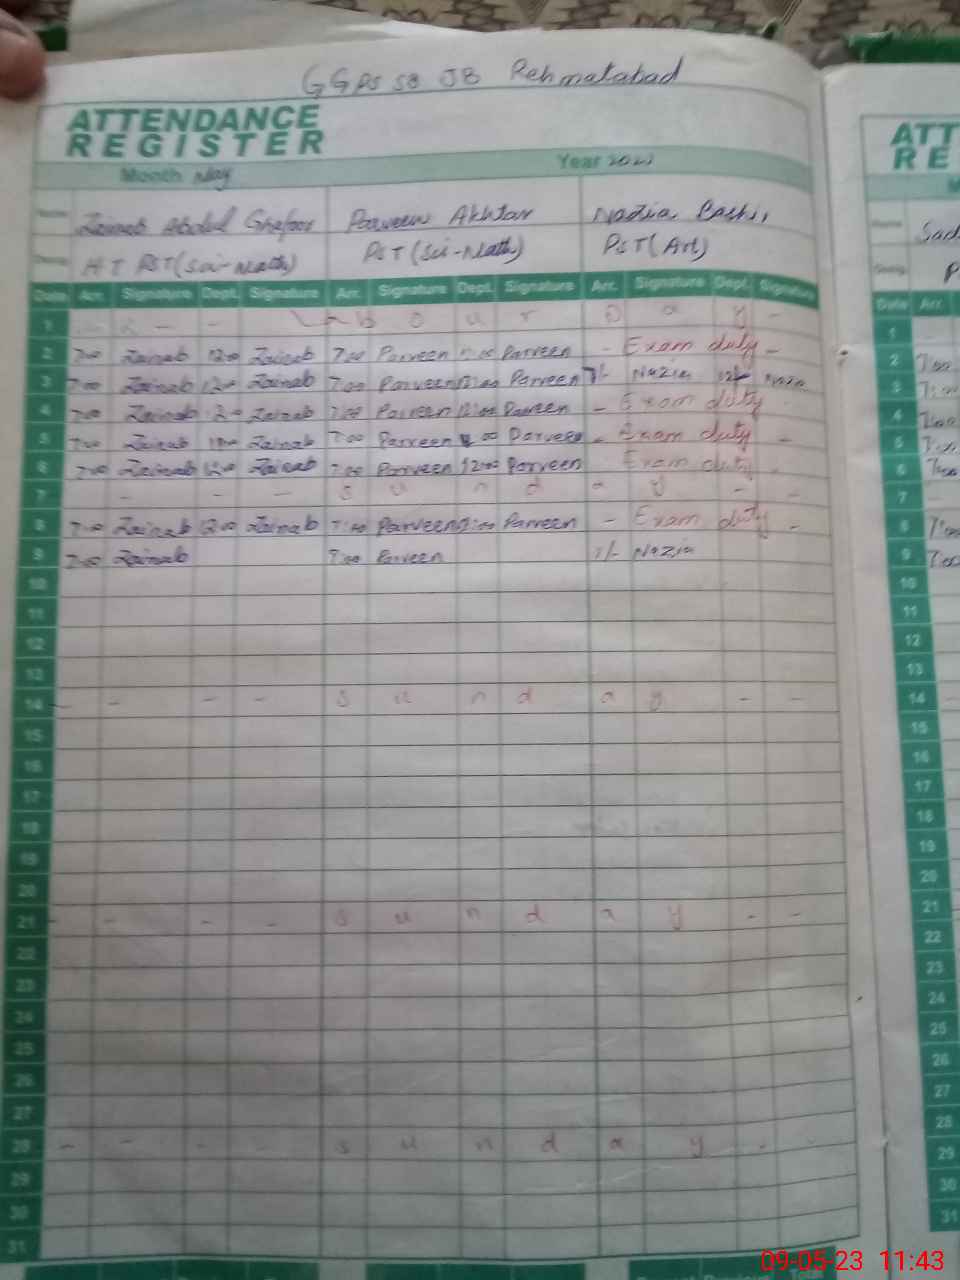 GGPS 58 JB Rehmatabad
ATTENDANCE
REGISTER
ATT
RE
Month May Year
Zainab Abdul Ghafoor Parveen Akhtar Nadia Bashir
HT PST (Sci-Math) PST (Sci-Math) PST (Art)
Date Arr. Signature Dept. Signature Arr. Signature Dept. Signature Arr. Signature Dept. Signature Date Arr.
1 - - Labour Day - 1
2 7:00 Zainab 12:00 Zainab 7:00 Parveen 12:00 Parveen - Exam duty - 2
3 7:00 Zainab 12:00 Zainab 7:00 Parveen 12:00 Parveen 7/- Nazia 12/- Nazia 3
4 7:00 Zainab 12:00 Zainab 7:00 Parveen 12:00 Parveen - Exam duty 4
5 7:00 Zainab 12:00 Zainab 7:00 Parveen 12:00 Parveen - Exam duty - 5
6 7:00 Zainab 12:00 Zainab 7:00 Parveen 12:00 Parveen Exam duty 6
7 - - - s u n d a y - - 7
8 7:00 Zainab 12:00 Zainab 7:00 Parveen 12:00 Parveen - Exam duty - 8
9 7:00 Zainab 7:00 Parveen 7/- Nazia 9
10 10
11 11
12 12
13 13
14 - - - - s u n d a y - - 14
15 15
16 16
17 17
18 18
19 19
20 20
21 - - - - s u n d a y - - 21
22 22
23 23
24 24
25 25
26 26
27 27
28 - - - - s u n d a y - 28
29 29
30 30
31 31
09-05-23 11:43